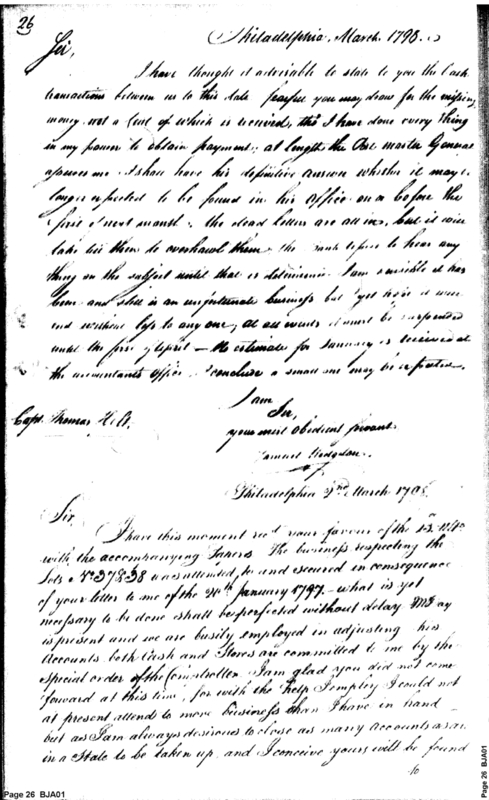 26
Philadelphia March 1798
Sir,
I have thought it advisable to state to you the Cash
transactions between us to this date fearful you may draw for the missing
money not a Cent of which is received, tho I have done every thing
in my power to obtain payment; at length the Post master General
assures me I shall have his definitive answer whether it may be
longer expected to be found in his Office on or before the
first of next month, the dead letters are all in, but it will
take time them to overhawl them the Bank refuse to hear any
thing on the subject until that is determined I am sensible it has
been and still is an unfortunate business but yet hope it will
end without loss to any one, at all events it must be suspended
until the first of April — No estimate for January is received at
the accountants Office I conclude a small one may be expected
I am
Sir,
your most obedient servant
Samuel Hodgdon
Capt. Thomas Holt.
Philadelphia 3rd March 1798
Sir
I have this moment recd. your favour of the
with the accompanying papers The business respecting the
Lots No 37 & 38 was attended to and secured in consequence
of your letter to me of the January 1797 - what is yet
necessary to be done shall be perfected without delay
is present and we are busily employed in adjusting his
Accounts both Cash and Stores are committed to me by the
special order of the Comptroller I am glad you did not come
forward at this time, for with the help I employ I could not
at present attend to more business than I have in hand
but as I am always desirous to close as many Accounts as are
in a State to be taken up and I conceive yours will be found
to
Page 26 BJA01
Page 26 BJA01